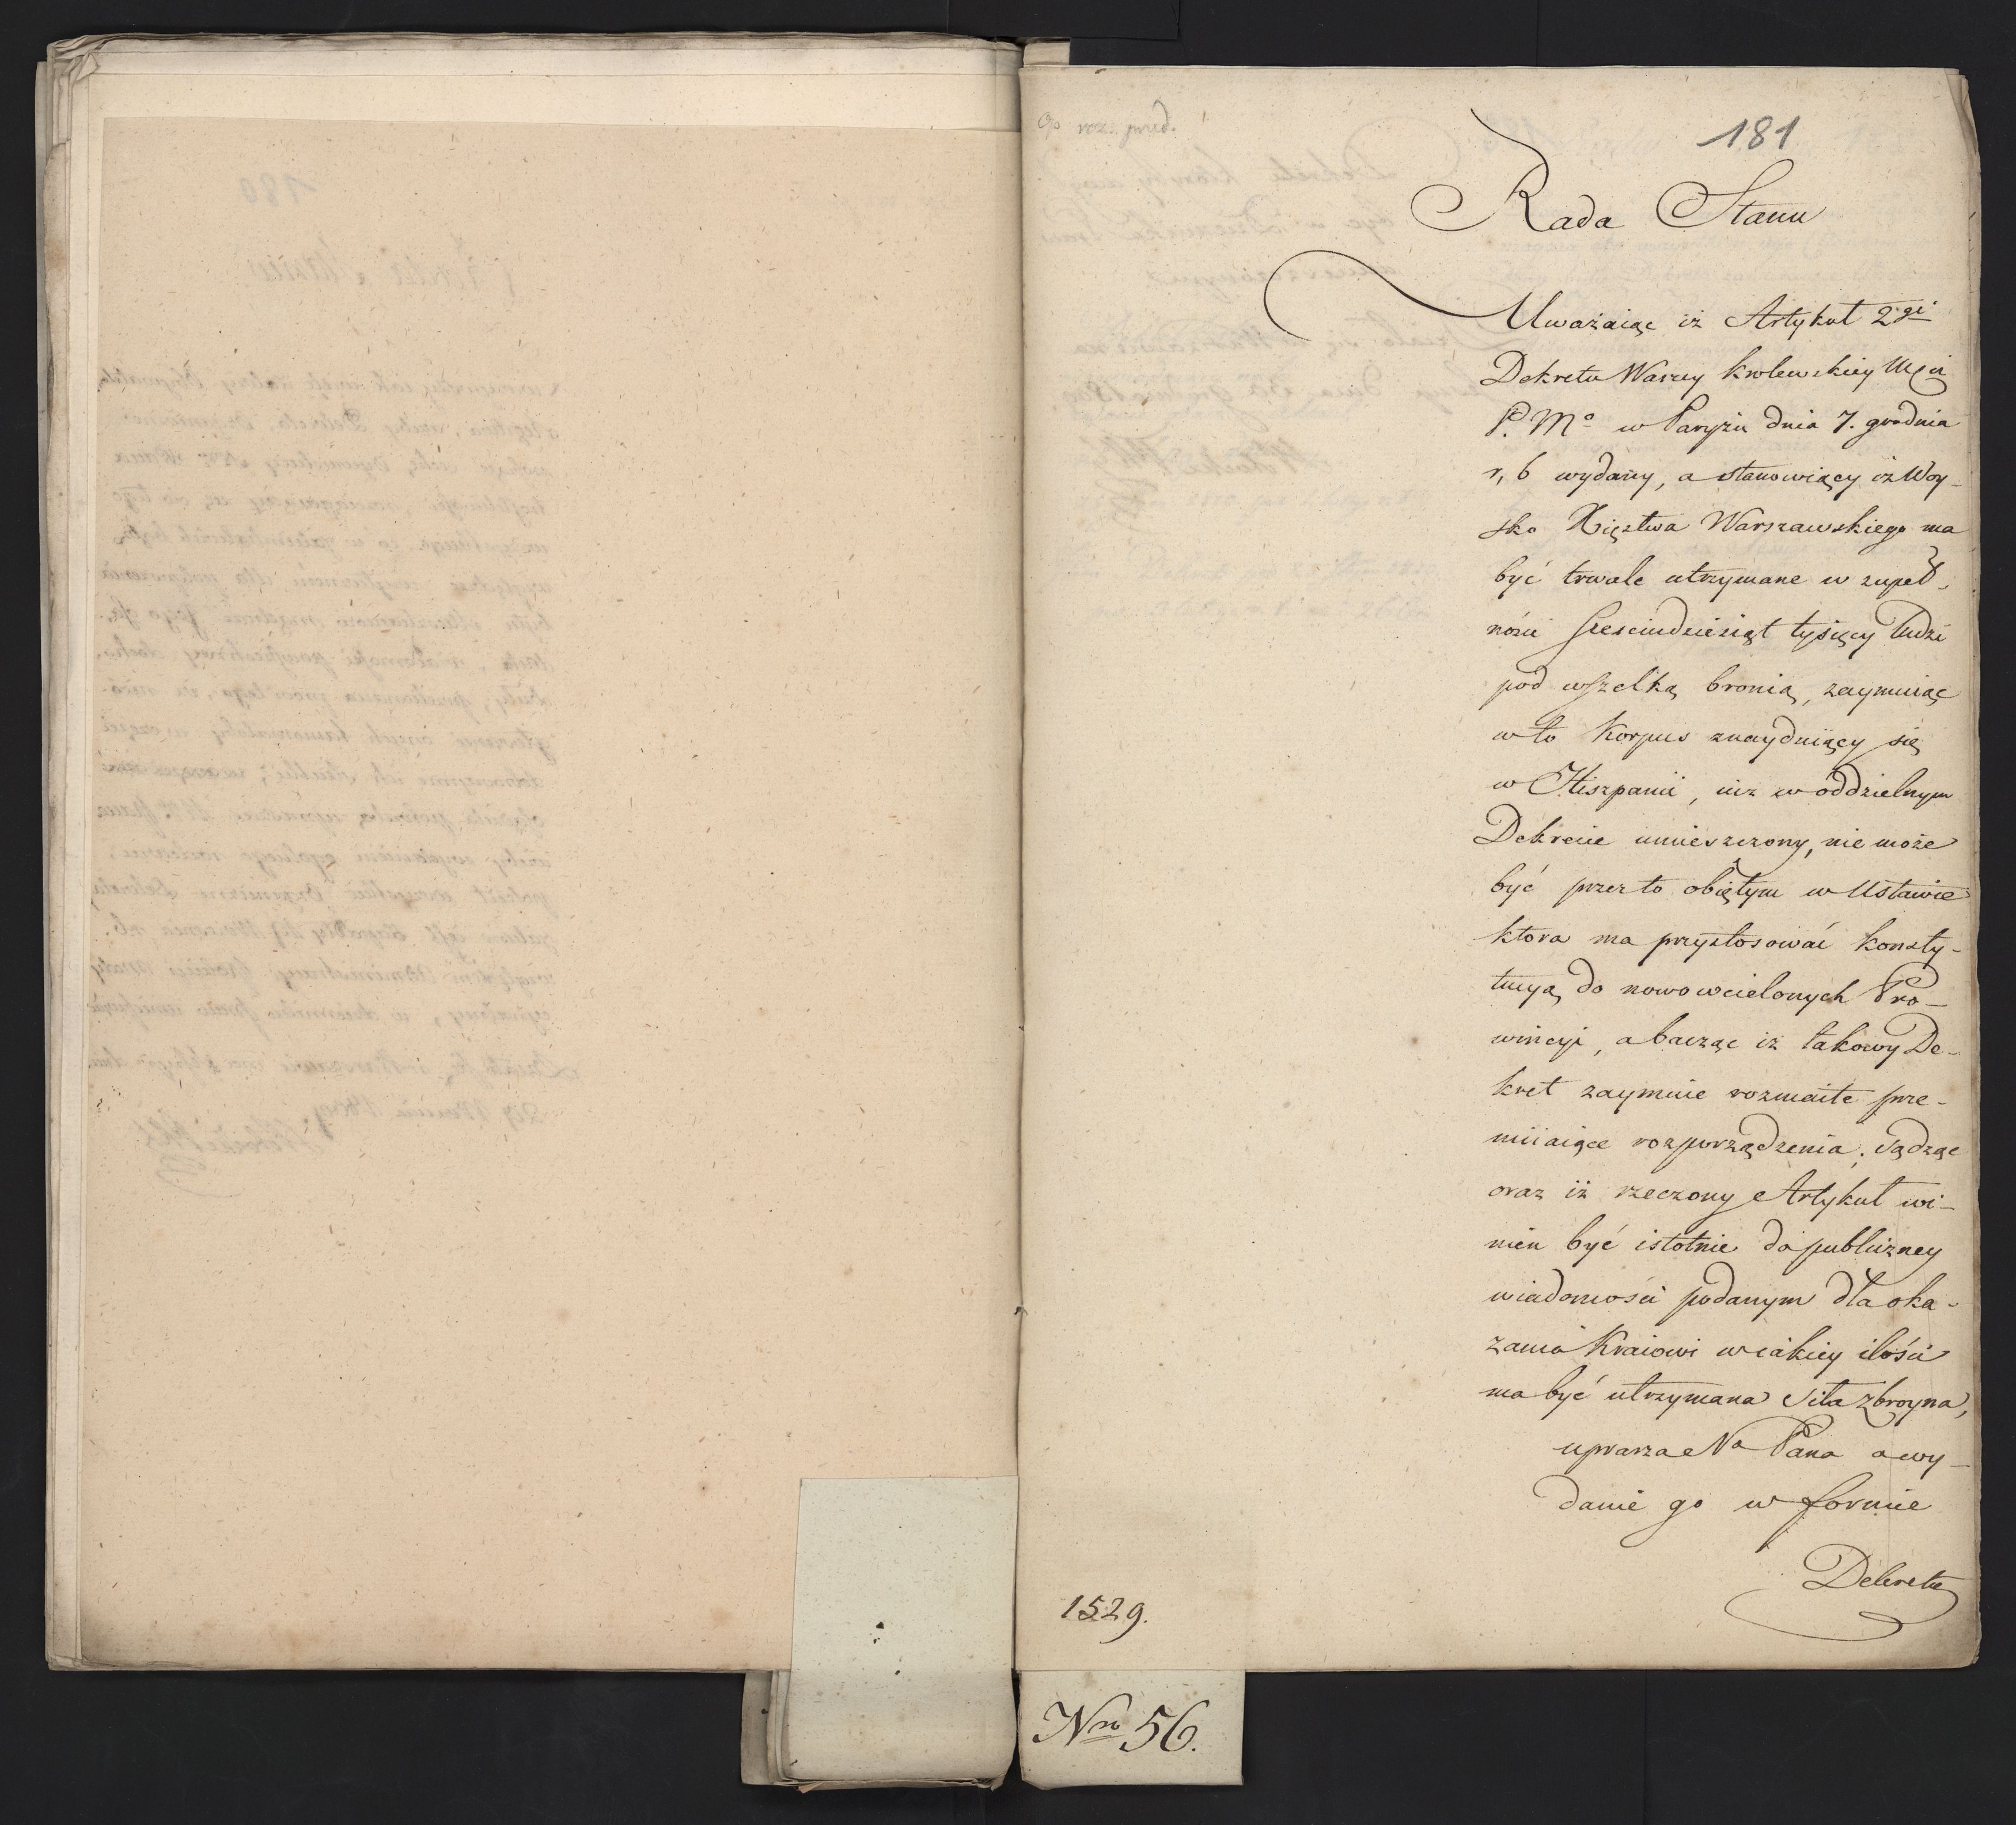 181
Rada Stanu
Uważaiąc iż Artykuł 2gi
Dekretu Waszey Krolewskiey Mci
P. Mo w Paryżu dnia 7. grudnia
r, b wydany, a stanowiący iż Woy-
sko Xięztwa Warszawskiego ma
być trwale utrzymane w zupeł-
ności sześciudziesiąt tysięcy ludzi
pod wszelką bronią, zaymuiąc
w to Korpus znayduiący się
w Hiszpanii, iuż w oddzielnym
Dekrecie umieszczony, nie może
być przez to obiętym w Ustawie
ktora ma przystosować konsty-
tucyą do nowo wcielonych Pro-
wincyi, a bacząc iż takowy De-
kret zaymuie rozmaite prze-
miiaiące rozporządzenia; sądząc
oraz iż rzeczony Artykuł wi-
nien być istotnie do publiczney
wiadomości podanym dla oka-
zania Kraiowi w iakiey ilości
ma być utrzymana siła zbroyna,
uprasza N. Pana o wy-
danie go w formie
Dekretu
1529.
Nro 56.